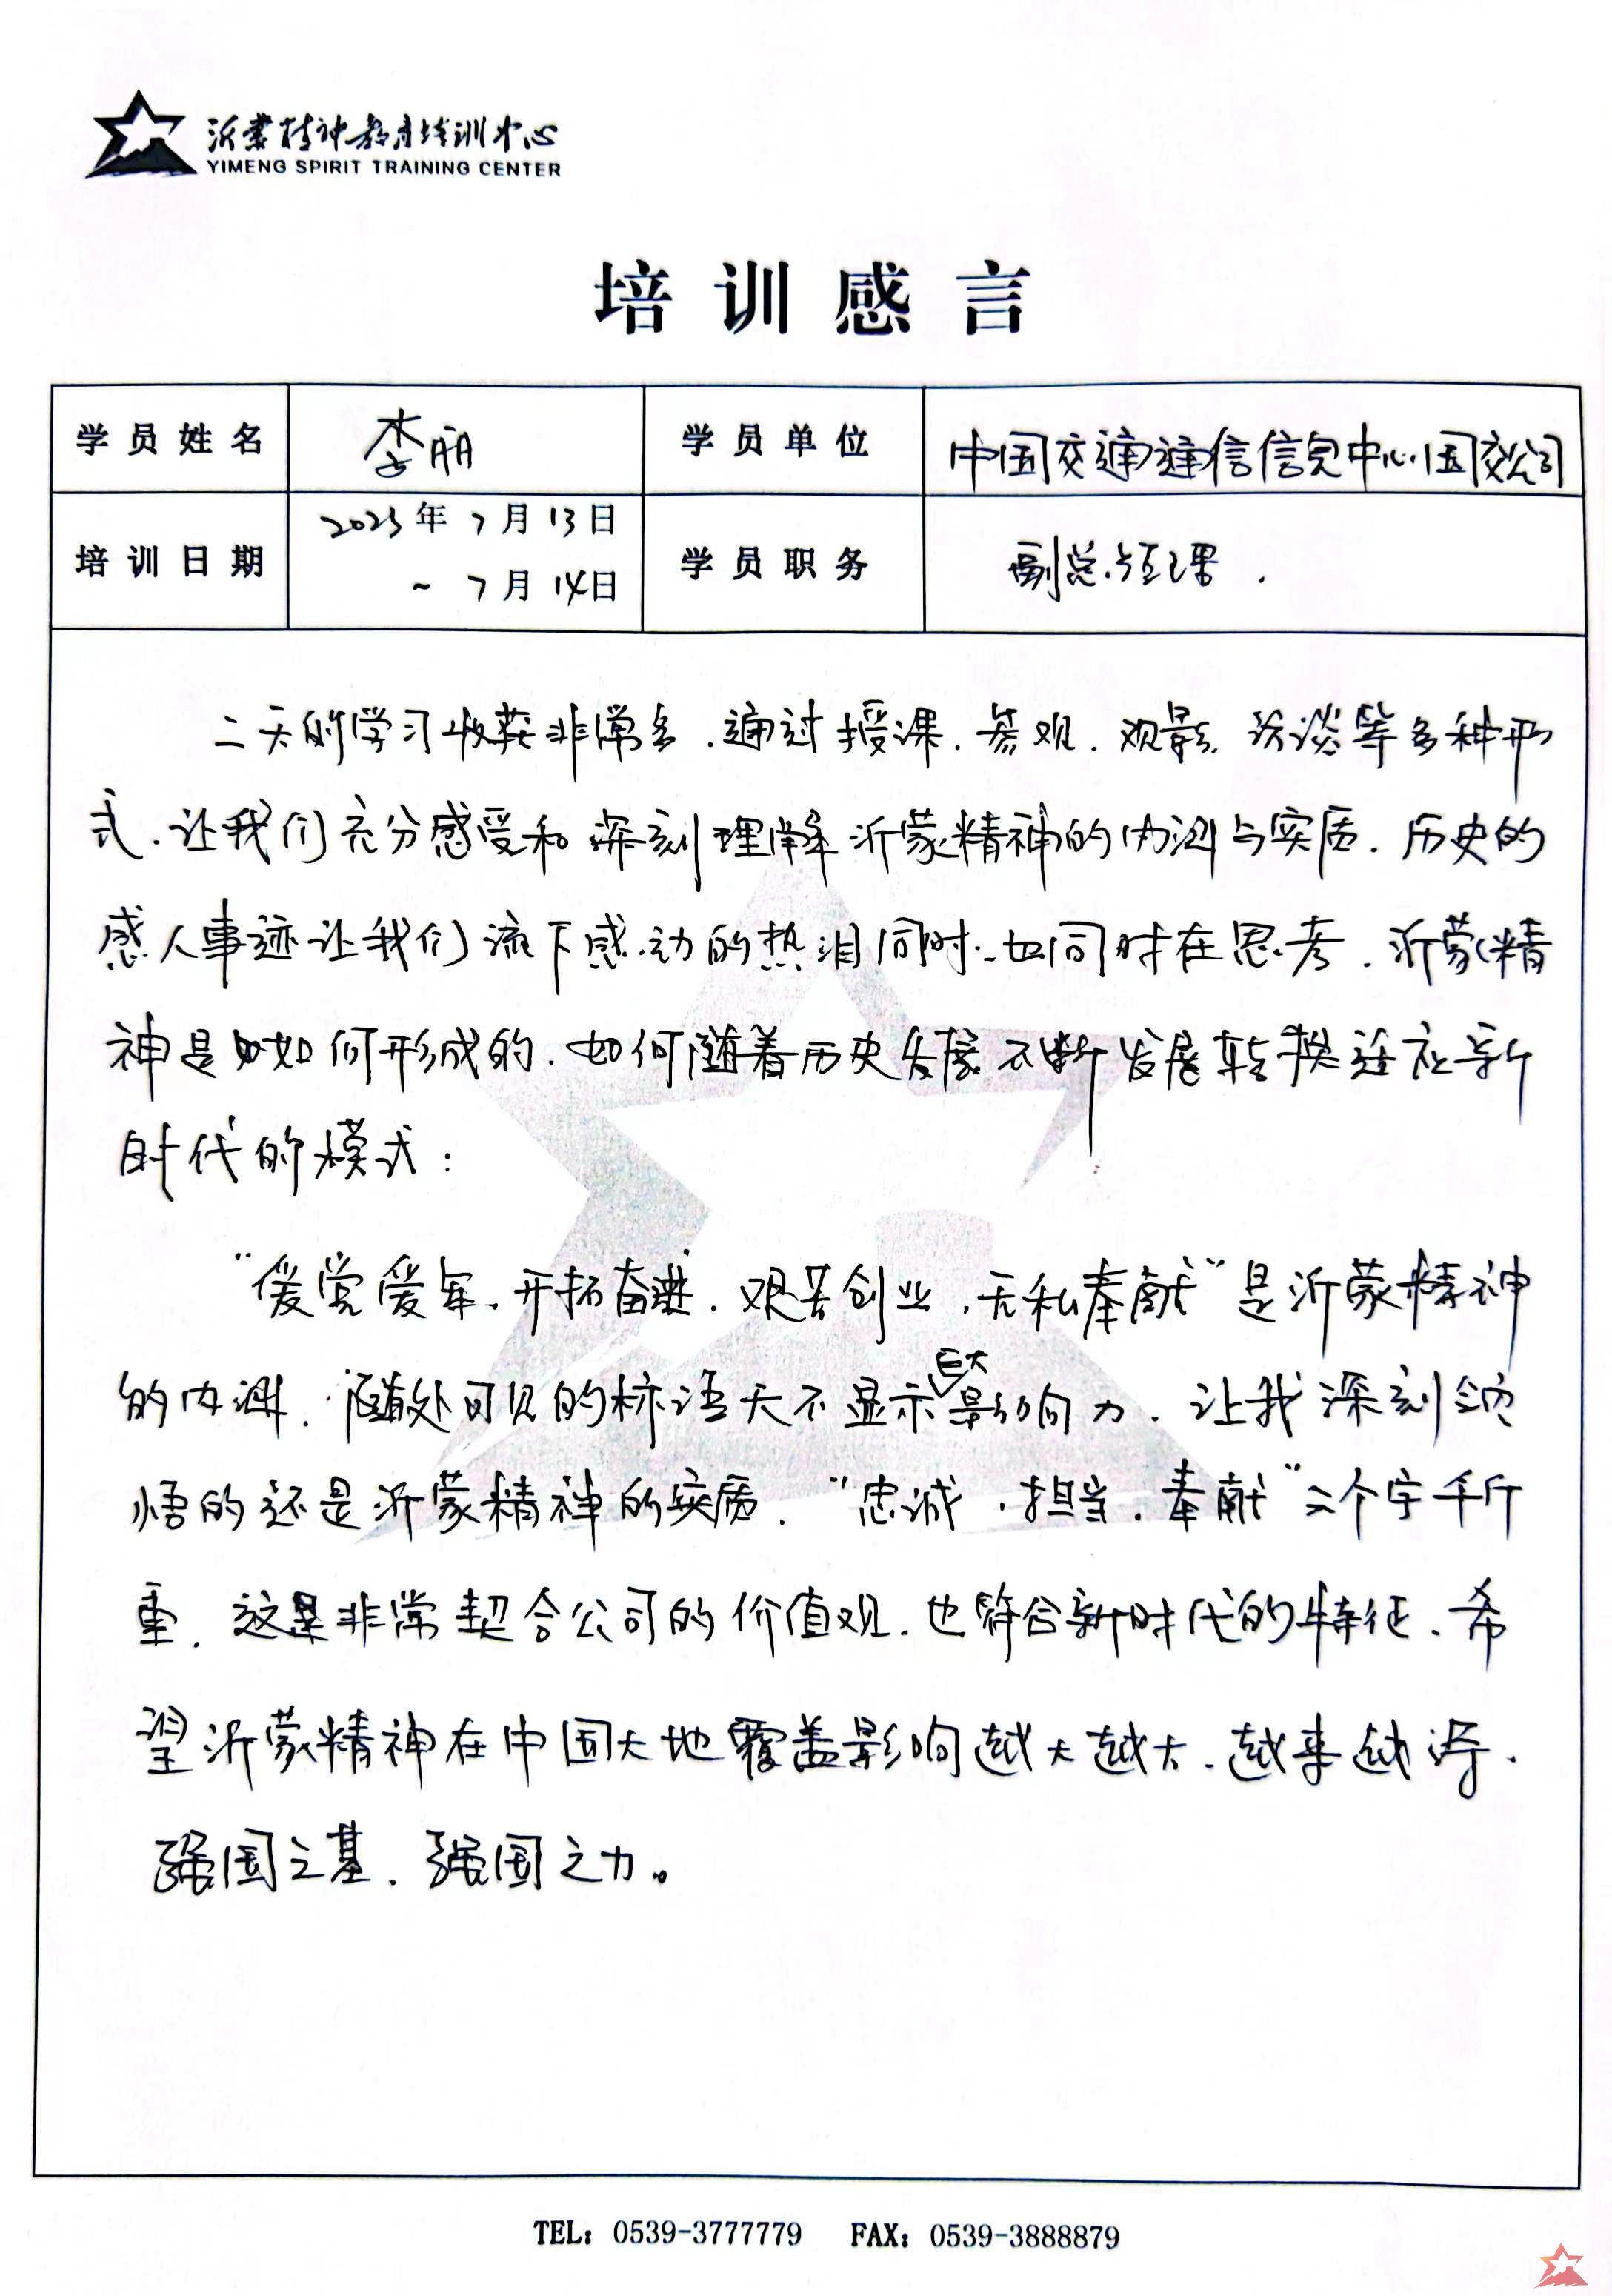 沂蒙精神教育培训中心
YIMENG SPIRIT TRAINING CENTER
培训感言
学员姓名 李丽 学员单位 中国交通通信信息中心国交公司
培训日期 2023年7月13日 ~7月14日 学员职务 副总经理.
二天的学习收获非常多.通过授课.参观.观影.访谈等多种形
式.让我们充分感受和深刻理解沂蒙精神的内涵与实质.历史的
感人事迹让我们流下感动的热泪同时.也同时在思考.沂蒙精
神是如何形成的.如何随着历史发展不断发展转换适应新
时代的模式:
“爱党爱军.开拓奋进.艰苦创业.无私奉献”是沂蒙精神
的内涵.随处可见的标语无不显示巨大影响力.让我深刻领
悟的还是沂蒙精神的实质.“忠诚.担当.奉献”六个字千斤
重.这是非常契合公司的价值观.也符合新时代的特征.希
望沂蒙精神在中国大地覆盖影响越大越大.越来越深.
强国之基.强国之力。
TEL: 0539-3777779 FAX: 0539-3888879